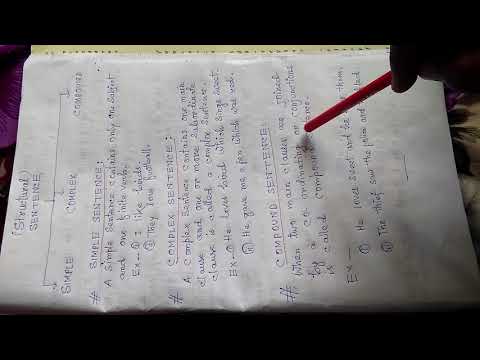 (Structural)
SENTENCE
SIMPLE COMPLEX COMPOUND
# SIMPLE SENTENCE:
A simple sentence contains only one subject
and one finite verb.
Ex- ① I like birds.
② They love football.
# COMPLEX SENTENCE:
A complex sentence contains one main
clause and one or more subordinate
clause is called a complex sentence.
Ex- ① He loves bird which sings sweet.
② He gave me a pen which was red.
# COMPOUND SENTENCE:
When two main clauses are joined
by a co-ordinating conjunctions
is called compound
Ex- ① He loves but he them.
② The thief saw the police and